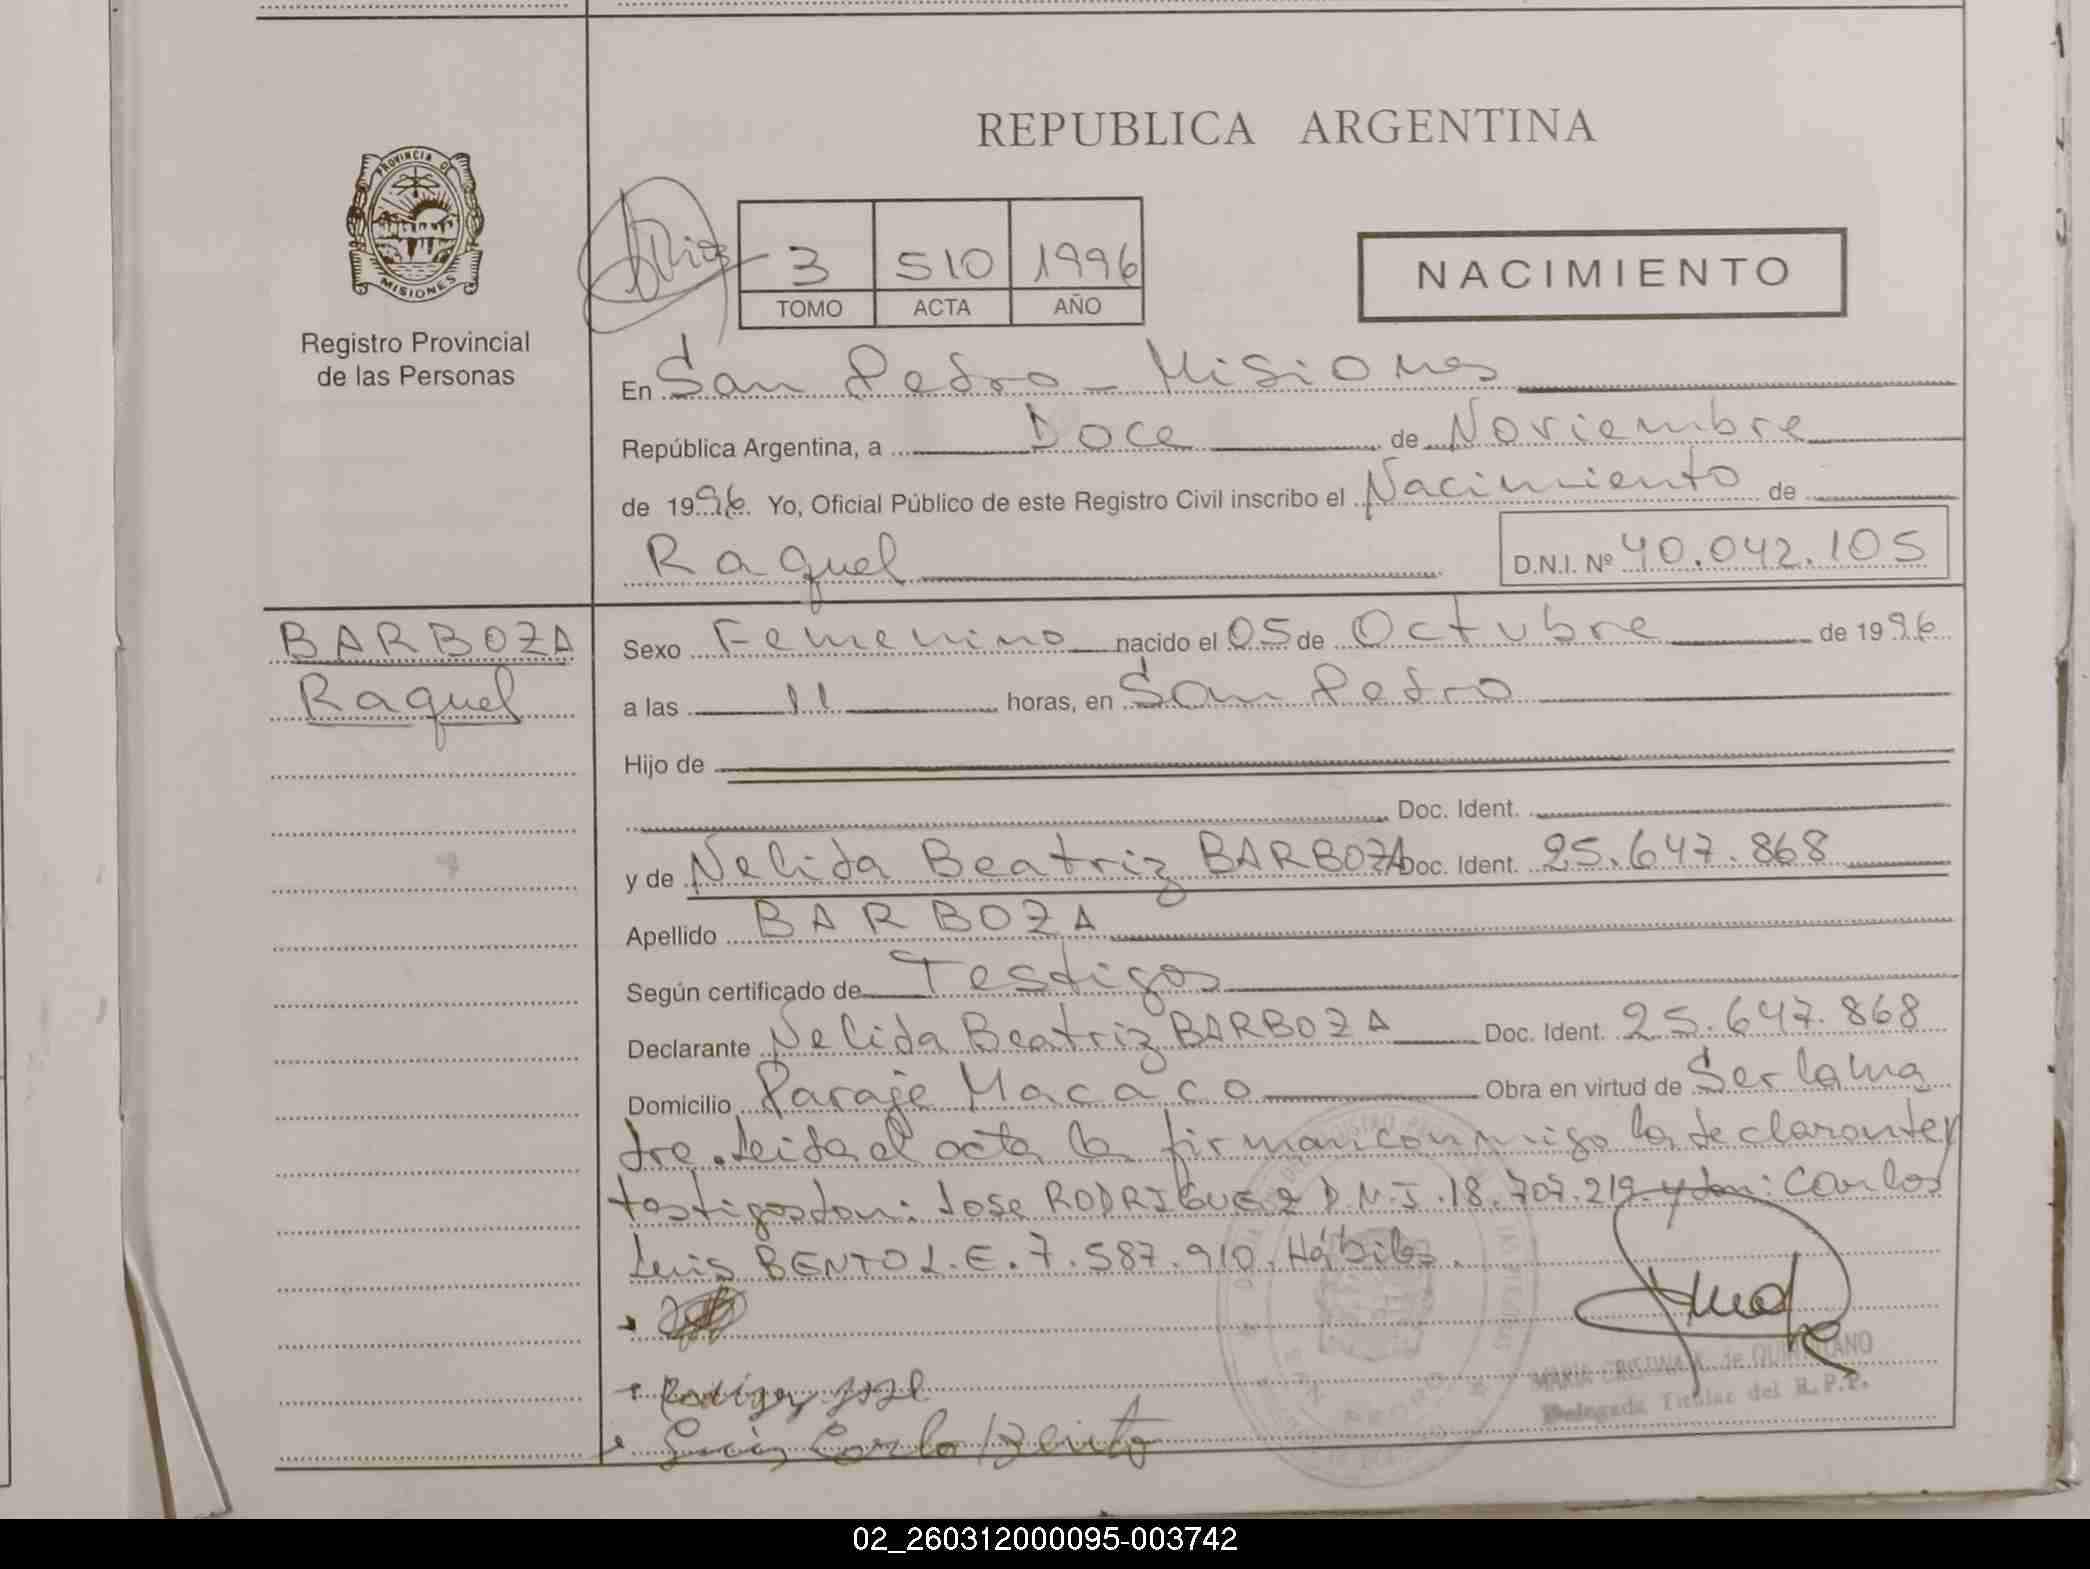 REPUBLICA ARGENTINA
PROVINCIA DE MISIONES
Registro Provincial
de las Personas
3 510 1996
TOMO ACTA AÑO
NACIMIENTO
En San Pedro - Misiones
República Argentina, a Doce de Noviembre
de 1996. Yo, Oficial Público de este Registro Civil inscribo el Nacimiento de
Raquel
D.N.I. Nº 40.042.105
BARBOZA
Raquel
Sexo Femenino nacido el 05 de Octubre de 1996
a las 11 horas, en San Pedro
Hijo de
Doc. Ident.
y de Nelida Beatriz BARBOZA Doc. Ident. 25.647.868
Apellido BARBOZA
Según certificado de Testigos
Declarante Nelida Beatriz BARBOZA Doc. Ident. 25.647.868
Domicilio Paraje Macaco Obra en virtud de Ser la ma
dre. Leida el acta la firman conmigo la declarante y
testigos don: Jose RODRIGUEZ D.N.I. 18.707.219 y don: Carlos
Luis BENTO L.E. 7.587.910. Hábiles.
MARIA CRISTINA de QUINTANO
Delegada Titular del R.P.P.
02_260312000095-003742